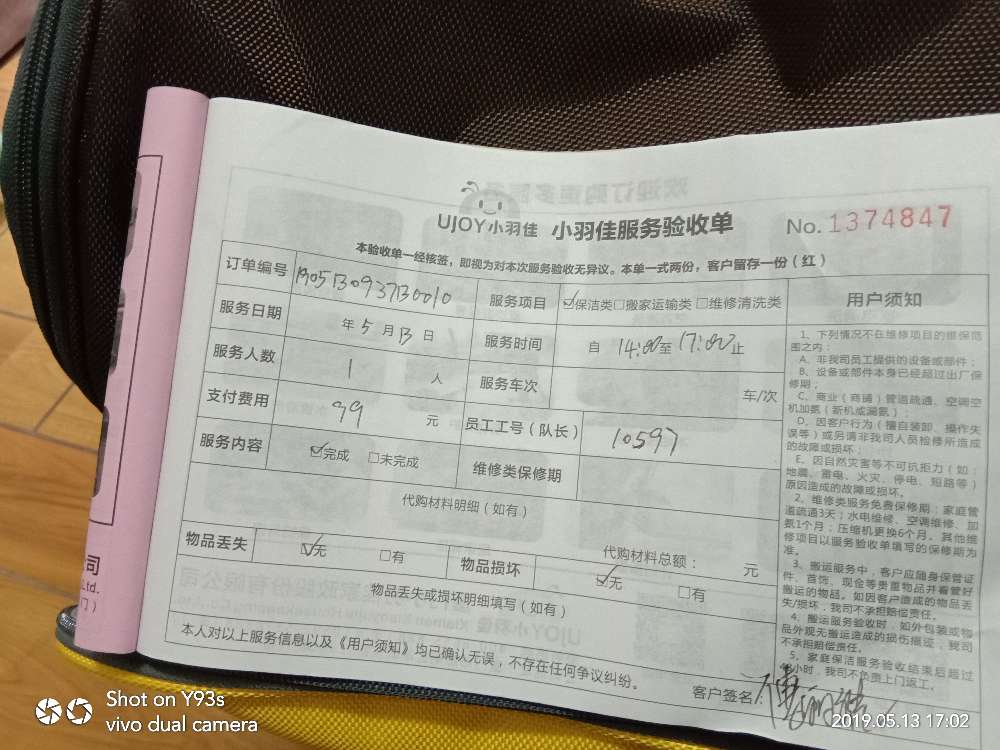 UJOY小羽佳 小羽佳服务验收单 No. 1374847
本验收单一经核签，即视为对本次服务验收无异议。本单一式两份，客户留存一份（红）
订单编号 1905130937130010 服务项目 ☑保洁类 □搬家运输类 □维修清洗类
服务日期 年 5 月 13 日 服务时间 自 14:00 至 17:00 止
服务人数 1 人 服务车次 车/次
支付费用 99 元 员工工号（队长） 10597
服务内容 ☑完成 □未完成 维修类保修期
代购材料明细（如有）
代购材料总额： 元
物品丢失 ☑无 □有 物品损坏 ☑无 □有
物品丢失或损坏明细填写（如有）
本人对以上服务信息以及《用户须知》均已确认无误，不存在任何争议纠纷。
客户签名：
用户须知
1、下列情况不在维修项目的维保范
围之内：
A、非我司员工提供的设备或部件；
B、设备或部件本身已经超过出厂保
修期；
C、商业（商铺）管道疏通、空调空
机加氨（新机或漏氨）；
D、因客户行为（擅自装卸、操作失
误等）或另请非我司人员检修所造成
的故障或损坏；
E、因自然灾害等不可抗拒力（如：
地震、雷电、火灾、停电、短路等）
原因造成的故障或损坏。
2、维修类服务免费保修期：家庭管
道疏通3天；水电维修、空调维修、加
氨1个月；压缩机更换6个月。其他维
修项目以服务验收单填写的保修期为
准。
3、搬运服务中，客户应随身保管证
件、首饰、现金等贵重物品并看管好
搬运的物品。如因客户造成的物品丢
失/损坏，我司不承担赔偿责任。
4、搬运服务验收时，如外包装或物
品外观无搬运造成的损伤痕迹，我司
不承担赔偿责任。
5、家庭保洁服务验收结束后超过
小时，我司不负责上门返工。
司
Ltd.
门）
Shot on Y93s
vivo dual camera
2019.05.13 17:02